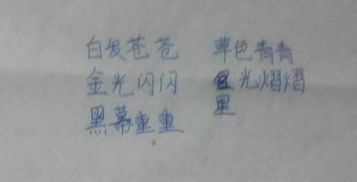 白发苍苍 草色青青
金光闪闪 星光熠熠
黑幕重重